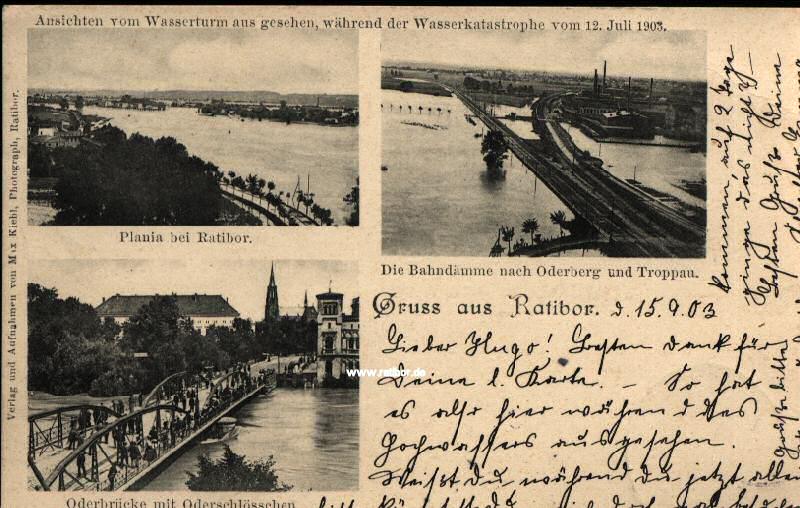 Ansichten vom Wasserturm aus gesehen, während der Wasserkatastrophe vom 12. Juli 1903.
Verlag und Aufnahmen von Max Kiehl, Photograph, Ratibor.
Plania bei Ratibor.
Die Bahndämme nach Oderberg und Troppau.
Oderbrücke mit Oderschlösschen
www.ratibor.de
Gruss aus Ratibor. d. 15.9.03
Lieber Hugo! Besten Dank für
Deine l. Karte. – So hat
es also hier während des
Hochwassers ausgesehen.
Weißt du während du jetzt allein
kommen auf 2 Tage
ginge das nicht?
Besten Gruß Deine